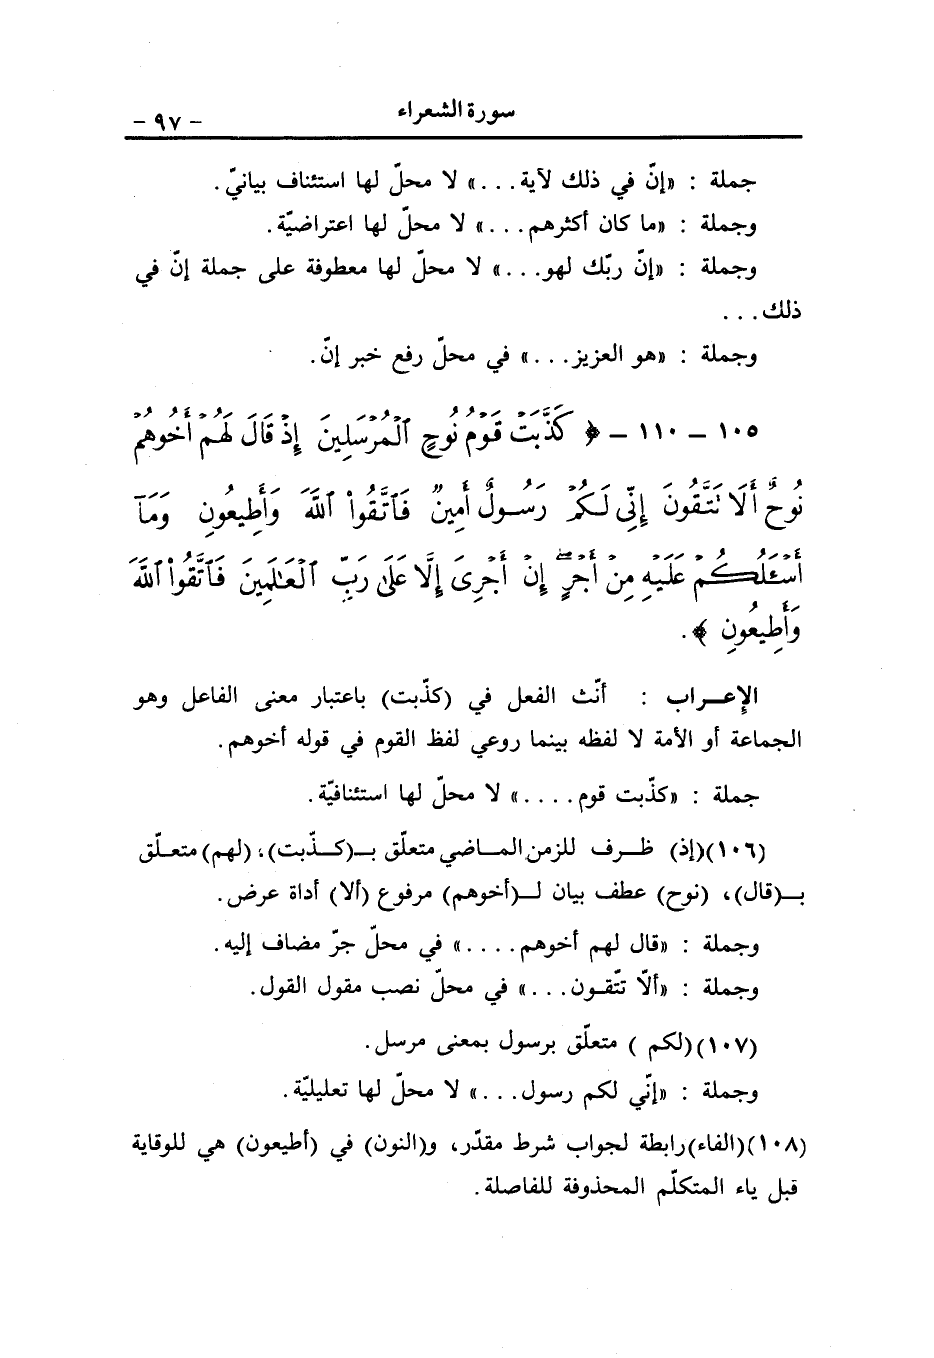 سورة الشعراء
- ٩٧ -
جملة : «إنّ في ذلك لآية...» لا محلّ لها استئناف بيانيّ.
وجملة : «ما كان أكثرهم...» لا محلّ لها اعتراضيّة.
وجملة : «إنّ ربّك لهو...» لا محلّ لها معطوفة على جملة إنّ في
ذلك...
وجملة : «هو العزيز...» في محلّ رفع خبر إنّ.
١٠٥ - ١١٠ - ﴿ كَذَّبَتْ قَوْمُ نُوحٍ ٱلْمُرْسَلِينَ إِذْ قَالَ لَهُمْ أَخُوهُمْ
نُوحٌ أَلَا تَتَّقُونَ إِنِّي لَكُمْ رَسُولٌ أَمِينٌ فَٱتَّقُوا۟ ٱللَّهَ وَأَطِيعُونِ وَمَآ
أَسْـَٔلُكُمْ عَلَيْهِ مِنْ أَجْرٍۖ إِنْ أَجْرِىَ إِلَّا عَلَىٰ رَبِّ ٱلْعَـٰلَمِينَ فَٱتَّقُوا۟ ٱللَّهَ
وَأَطِيعُونِ ﴾.
الإعراب : أنّث الفعل في (كذّبت) باعتبار معنى الفاعل وهو
الجماعة أو الأمة لا لفظه بينما روعي لفظ القوم في قوله أخوهم.
جملة : «كذّبت قوم....» لا محلّ لها استئنافيّة.
(١٠٦)(إذ) ظرف للزمن الماضي متعلّق بـ(كذّبت)، (لهم) متعلّق
بـ(قال)، (نوح) عطف بيان لـ(أخوهم) مرفوع (ألا) أداة عرض.
وجملة : «قال لهم أخوهم....» في محلّ جرّ مضاف إليه.
وجملة : «ألا تتّقون...» في محلّ نصب مقول القول.
(١٠٧)(لكم ) متعلّق برسول بمعنى مرسل.
وجملة : «إنّي لكم رسول...» لا محلّ لها تعليليّة.
(١٠٨)(الفاء)رابطة لجواب شرط مقدّر، و(النون) في (أطيعون) هي للوقاية
قبل ياء المتكلّم المحذوفة للفاصلة.